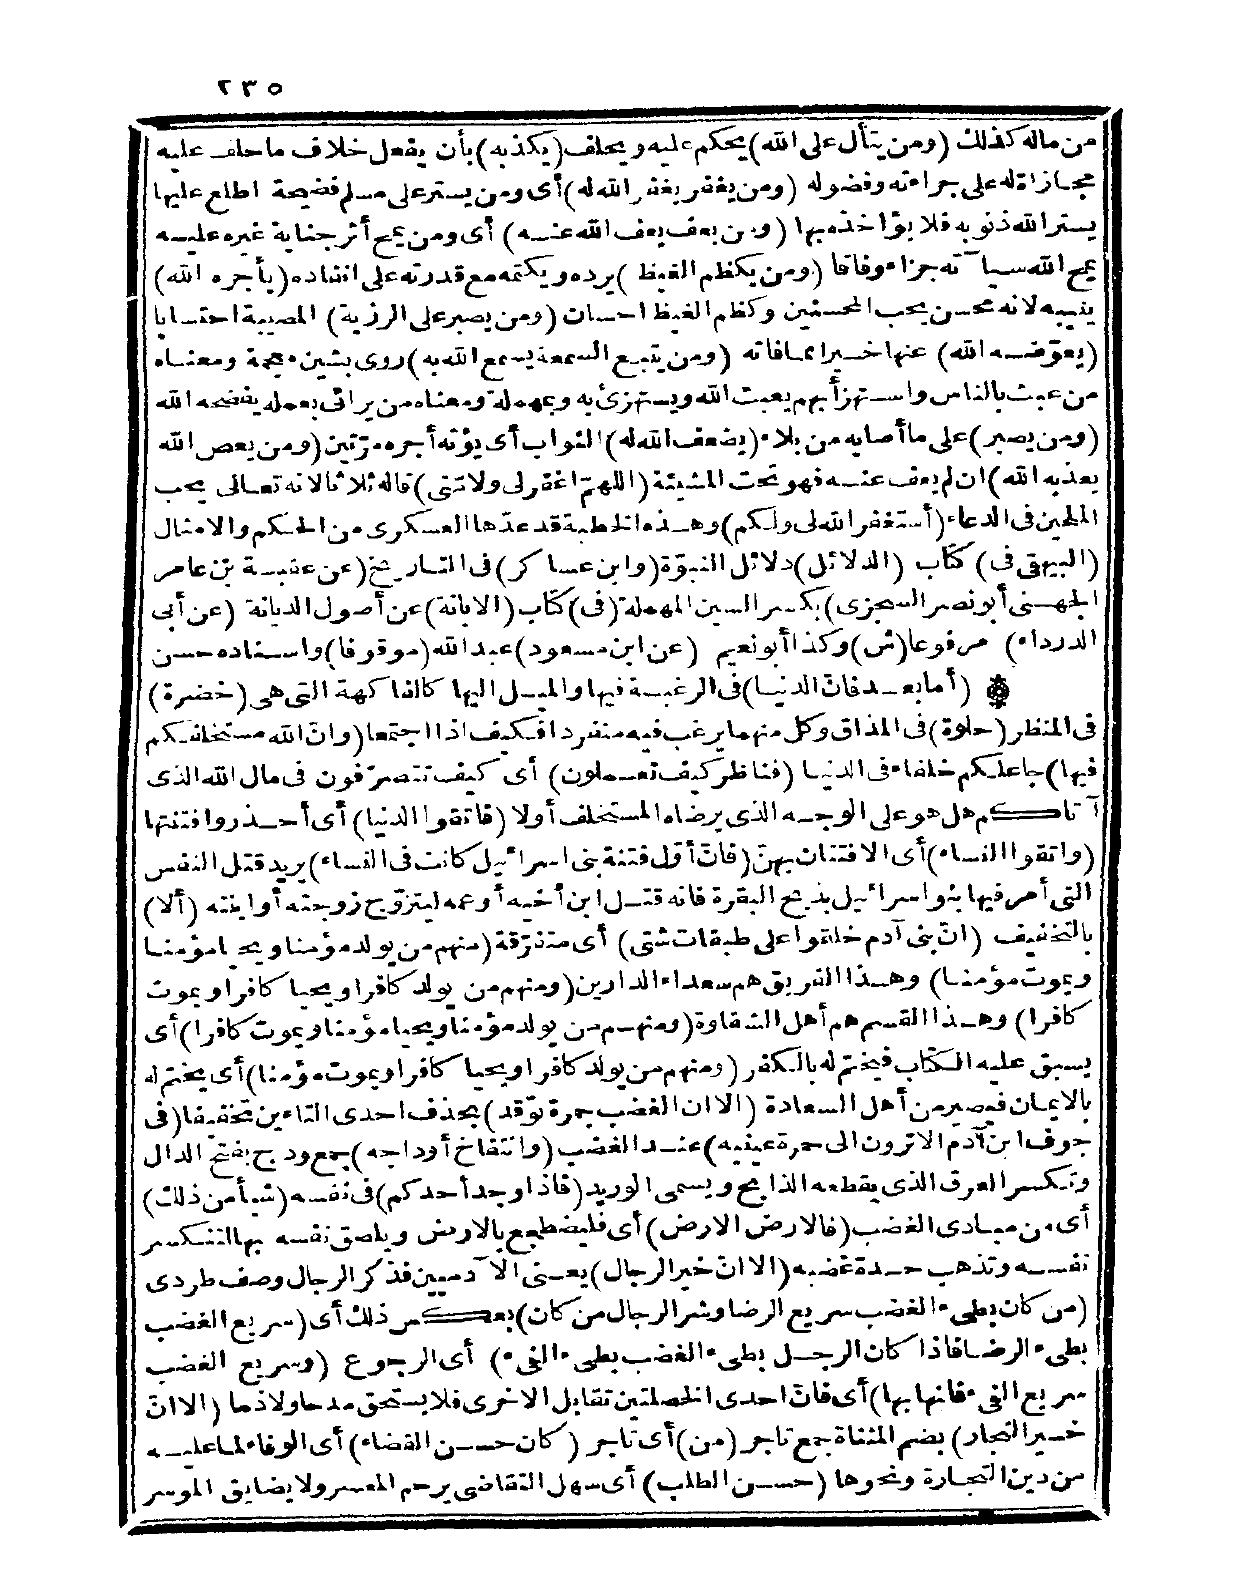 ٢٣٥
من ماله كذلك (ومن يتأل على الله) يحكم عليه ويحلف (يكذبه) بأن يفعل خلاف ما حلف عليه
مجازاة له على جراءته وفضوله (ومن يغفر يغفر الله له) أى ومن يستر على مسلم فضيحة اطلع عليها
يستر الله ذنوبه فلا يؤاخذه بها (ومن يعف يعف الله عنه) أى ومن يمح أثر جناية غيره عليه
يمح الله سيآته جزاء وفاقا (ومن يكظم الغيظ) يرده ويكتمه مع قدرته على انفاذه (يأجره الله)
يثيبه لانه محسن يحب المحسنين وكظم الغيظ احسان (ومن يصبر على الرزية) المصيبة احتسابا
(يعوّضه الله) عنها خيرا مما فاته (ومن يتبع السمعة يسمع الله به) روى بشين معجمة ومعناه
من عبث بالناس واستهزأ بهم يعبث الله ويستهزئ به وبمهملة ومعناه من يرائى بعمله يفضحه الله
(ومن يصبر) على ما أصابه من بلاء (يضعف الله له) الثواب أى يؤته أجره مرّتين (ومن يعص الله
يعذبه الله) ان لم يعف عنه فهو تحت المشيئة (اللهمّ اغفر لى ولامّتى) قاله ثلاثا لانه تعالى يحب
الملحين فى الدعاء (أستغفر الله لى ولكم) وهذه الخطبة قد عدّها العسكرى من الحكم والامثال
(البيهقى فى) كتاب (الدلائل) دلائل النبوّة (وابن عساكر) فى التاريخ (عن عقبة بن عامر
الجهنى أبو نصر السجزى) بكسر السين المهملة (فى) كتاب (الابانة) عن أصول الديانة (عن أبى
الدرداء) مرفوعا (ش) وكذا أبو نعيم (عن ابن مسعود) عبد الله (موقوفا) واسناده حسن
(أما بعد فانّ الدنيا) فى الرغبة فيها والميل اليها كالفاكهة التى هى (خضرة)
فى المنظر (حلوة) فى المذاق وكل منهما يرغب فيه منفردا فكيف اذا اجتمعا (وانّ الله مستخلفكم
فيها) جاعلكم خلفاء فى الدنيا (فناظر كيف تعملون) أى كيف تتصرّفون فى مال الله الذى
آتاكم هل هو على الوجه الذى يرضاه المستخلف أولا (فاتقوا الدنيا) أى احذروا فتنتها
(واتقوا النساء) أى الافتتان بهنّ (فانّ أوّل فتنة بنى اسرائيل كانت فى النساء) يريد قتل النفس
التى أمر فيها بنو اسرائيل بذبح البقرة فانه قتل ابن أخيه أو عمه ليتزوّج زوجته أو ابنته (ألا)
بالتخفيف (انّ بنى آدم خلقوا على طبقات شتى) أى متفرّقة (منهم من يولد مؤمنا ويحيا مؤمنا
ويموت مؤمنا) وهذا الفريق هم سعداء الدارين (ومنهم من يولد كافرا ويحيا كافرا ويموت
كافرا) وهذا القسم هم أهل الشقاوة (ومنهم من يولد مؤمنا ويحيا مؤمنا ويموت كافرا) أى
يسبق عليه الكتاب فيختم له بالكفر (ومنهم من يولد كافرا ويحيا كافرا ويموت مؤمنا) أى يختم له
بالايمان فيصير من أهل السعادة (الا ان الغضب جمرة توقد) بحذف احدى التاءين تخفيفا (فى
جوف ابن آدم الا ترون الى حمرة عينيه) عند الغضب (وانتفاخ أوداجه) جمع ودج بفتح الدال
وتكسر العرق الذى يقطعه الذابح ويسمى الوريد (فاذا وجد أحدكم) فى نفسه (شيأ من ذلك)
أى من مبادى الغضب (فالارض الارض) أى فليضطجع بالارض ويلصق نفسه بها لتنكسر
نفسه وتذهب حدة غضبه (الا انّ خير الرجال) يعنى الآدميين فذكر الرجال وصف طردى
(من كان بطىء الغضب سريع الرضا وشر الرجال من كان) بعكس ذلك أى (سريع الغضب
بطىء الرضا فاذا كان الرجل بطىء الغضب بطىء الفىء) أى الرجوع (وسريع الغضب
سريع الفىء فانها بها) أى فانّ احدى الخصلتين تقابل الاخرى فلا يستحق مدحا ولا ذما (الا انّ
خير التجار) بضم المثناة جمع تاجر (من) أى تاجر (كان حسن القضاء) أى الوفاء لما عليه
من دين التجارة ونحوها (حسن الطلب) أى سهل التقاضى يرحم المعسر ولا يضايق الموسر